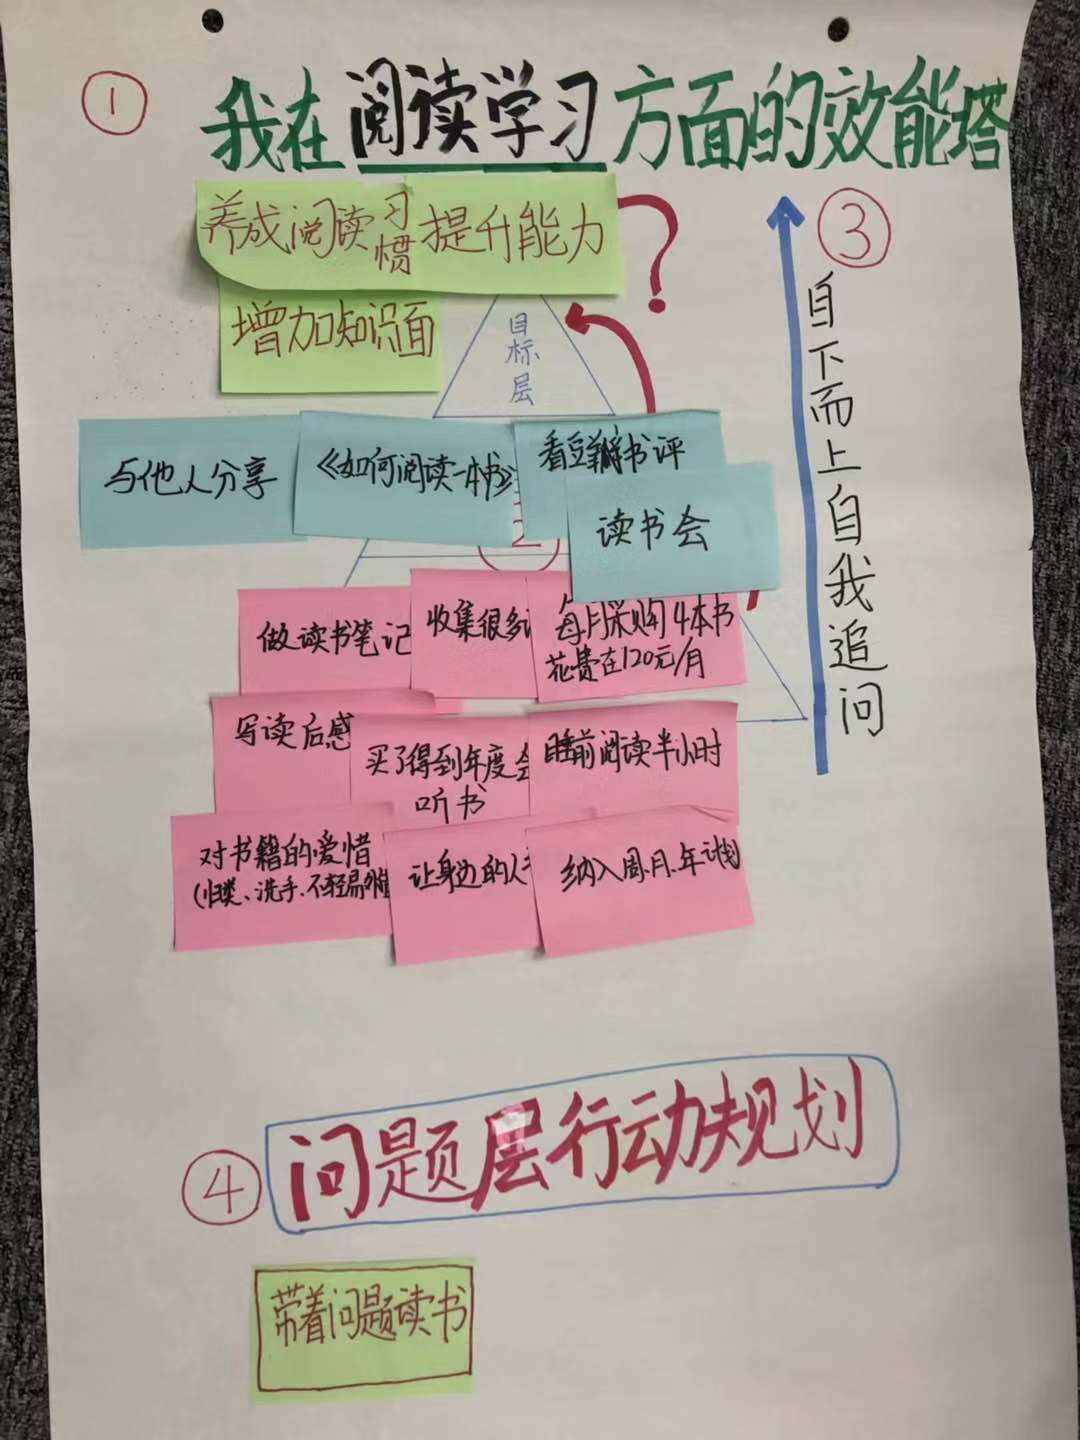 ①
我在阅读学习方面的效能塔
养成阅读习惯 提升能力
?
③
增加知识面
目标层
自下而上自我追问
与他人分享
《如何阅读一本书》
看豆瓣书评
读书会
②
做读书笔记
收集很多
每月采购4本书
花费在120元/月
写读后感
买了得到年度会
听书
睡前阅读半小时
对书籍的爱惜
(归类、洗手、不轻易外借
让身边的人
纳入周.月.年计划
④
问题层行动规划
带着问题读书